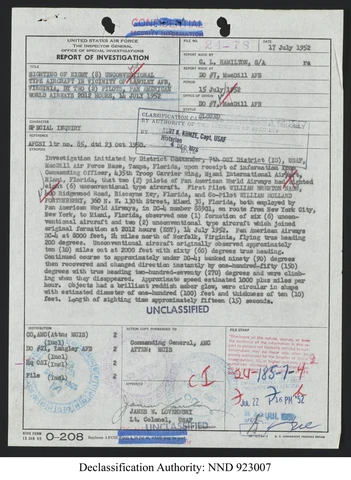 CONFIDENTIAL
SECURITY INFORMATION
UNITED STATES AIR FORCE
THE INSPECTOR GENERAL
OFFICE OF SPECIAL INVESTIGATIONS
REPORT OF INVESTIGATION
FILE NO.
24-78
DATE
17 July 1952
REPORT MADE BY
C. L. HAMILTON, S/A
TITLE
SIGHTING OF EIGHT (8) UNCONVENTIONAL
TYPE AIRCRAFT IN VICINITY OF LANGLEY AFB,
VIRGINIA, BY TWO (2) PILOTS, PAN AMERICAN
WORLD AIRWAYS 2012 HOURS, 14 JULY 1952
REPORT MADE AT
DO #7, MacDill AFB
PERIOD
15 July 1952
OFFICE OF ORIGIN
DO #7, MacDill AFB
STATUS
CLOSED
CHARACTER
SPECIAL INQUIRY
REFERENCE
AFOSI ltr no. 85, dtd 23 Oct 1950.
KURT K. KUNZE, Capt, USAF
Historian
SYNOPSIS
Investigation initiated by District Commander, 7th OSI District (IG), USAF,
MacDill Air Force Base, Tampa, Florida, upon receipt of information from
Commanding Officer, 435th Troop Carrier Wing, Miami International Airport,
Miami, Florida, that two (2) pilots of Pan American World Airways had sighted
eight (8) unconventional type aircraft. First Pilot WILLIAM
Ridgewood Road, Biscayne Key, Florida, and Co-pilot WILLIAM
FORTENBERRY, N. W. 130th Street, Miami 50, Florida, both employed by
Pan American World Airways, in DC-4 number en route from New York City,
New York, to Miami, Florida, observed one (1) formation of six (6) uncon-
ventional aircraft and two (2) unconventional type aircraft which joined
original formation at 2012 hours (EST), 14 July 1952. Pan American Airways
DC-4 at 8000 feet, miles north of Norfolk, Virginia, flying true heading
200 degrees. Unconventional aircraft originally observed approximately
ten (10) miles out at 2000 feet with sixty (60) degrees true heading.
Continued course to approximately under DC-4; banked ninety (90) degrees
then recovered and changed direction instantly by one-hundred-fifty (150)
degrees with true heading two-hundred-seventy (270) degrees and were climb-
ing when they disappeared. Approximate speed estimated 1000 plus miles per
hour. Objects had a brilliant reddish amber glow, were circular in shape
with estimated diameter of one-hundred (100) feet and thickness of ten (10)
feet. Length of sighting time approximately fifteen (15) seconds.
UNCLASSIFIED
DISTRIBUTION
CO, AMC (Attn: MCIS) 2
(Incl)
DO #21, Langley AFB 2
(Incl)
Hq OSI 2
(Incl)
File 2
(Incl)
ACTION COPY FORWARDED TO
Commanding General, AMC
ATTN: MCIS
FILE STAMP
24-185-7-4
JUL 22 7 16 PM '52
JAMES W. LOVENBURY
Lt. Colonel, USAF
UNCLASSIFIED
O-208
Declassification Authority: NND 923007